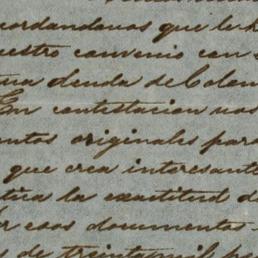 cordandonos que le h
uestro convenio con
gua deuda de Colom
En contestacion nos
entos originales para
que crea interesante
tica la exactitud d
der esos documentos
s de treinta mil pe